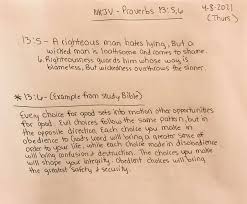 NKJV - Proverbs 13:5,6
4-8-2021
(Thurs.)
13:5 - A righteous man hates lying, But a
wicked man is loathsome and comes to shame.
6. Righteousness guards him whose way is
blameless, But wickedness overthrows the sinner.
* 13:6 - (Example from Study Bible)
Every choice for good sets into motion other opportunities
for good. Evil choices follow the same pattern, but in
the opposite direction. Each choice you make in
obedience to God's word will bring a greater sense of
order to your life, while each choice made in disobedience
will bring confusion & destruction. The choices you make
will shape your integrity. Obedient choices will bring
the greatest safety & security.